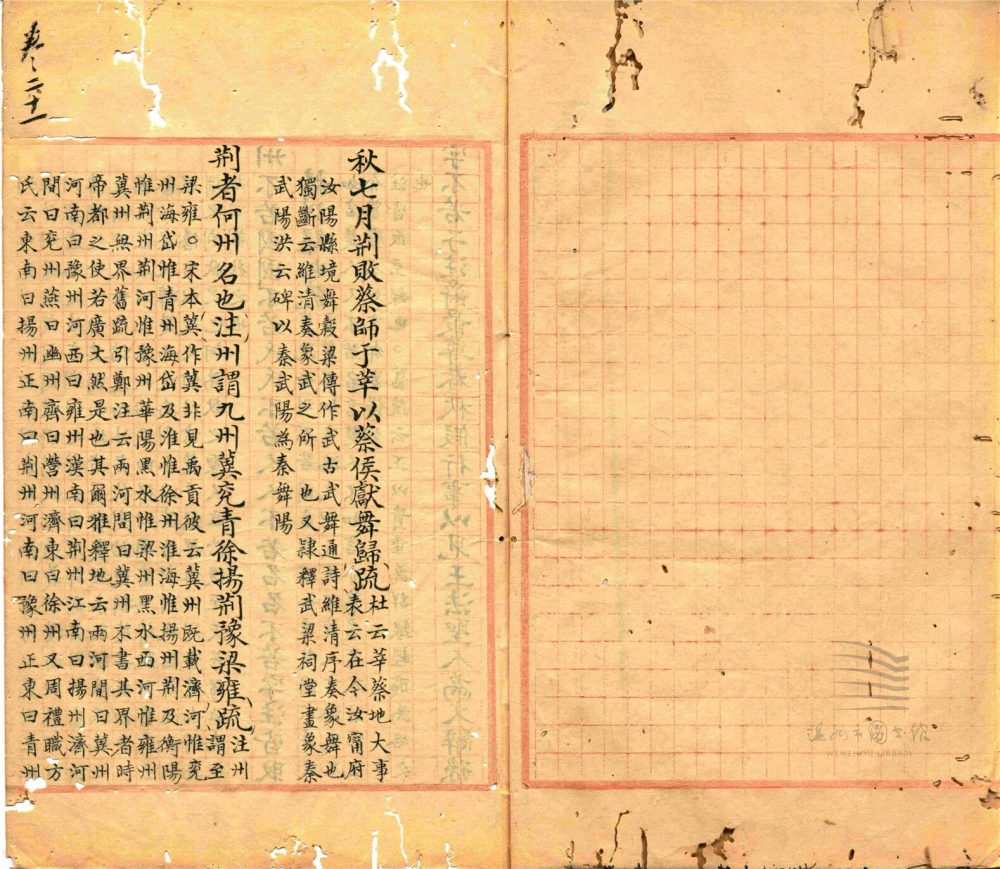 温州市图书馆
WENZHOU LIBRARY
秋七月荆敗蔡師于莘以蔡侯獻舞歸疏
杜云莘蔡地大事
表云在今汝甯府
汝陽縣境舞穀梁傳作武古武舞通詩維清序奏象舞也
獨斷云維清奏象武之所 也又隸釋武梁祠堂畫象秦
武陽洪云碑以秦武陽為秦舞陽
荆者何州名也注州謂九州冀兖青徐揚荆豫梁雍疏
注州
謂至
梁雍○宋本冀作兾非見禹貢彼云冀州既載濟河惟兖
州海岱惟青州海岱及淮惟徐州淮海惟揚州荆及衡陽
惟荆州荆河惟豫州華陽黑水惟梁州黑水西河惟雍州
冀州無界舊疏引鄭注云兩河間曰冀州不書其界者時
帝都之使若廣大然是也其爾雅釋地云兩河間曰冀州
河南曰豫州河西曰雍州漢南曰荆州江南曰揚州濟河
間曰兖州燕曰幽州齊曰營州濟東曰徐州又周禮職方
氏云東南曰揚州正南曰荆州河南曰豫州正東曰青州
卷二十一